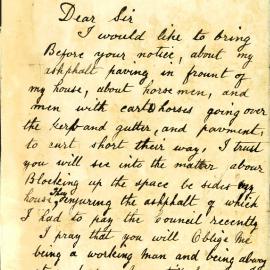 Dear Sir
I would like to bring
Before your notice, about my
askphalt paving in frount of
my house, about horse men, and
men with carts horses going over
the kerb and gutter, and pavment,
to curt short their way, I trust
you will see into the matter abour
Blocking up the space be sides my
house, they enjuring the askphalt of which
I had to pay the Council recently
I pray that you will Oblige me
being a working man and being away